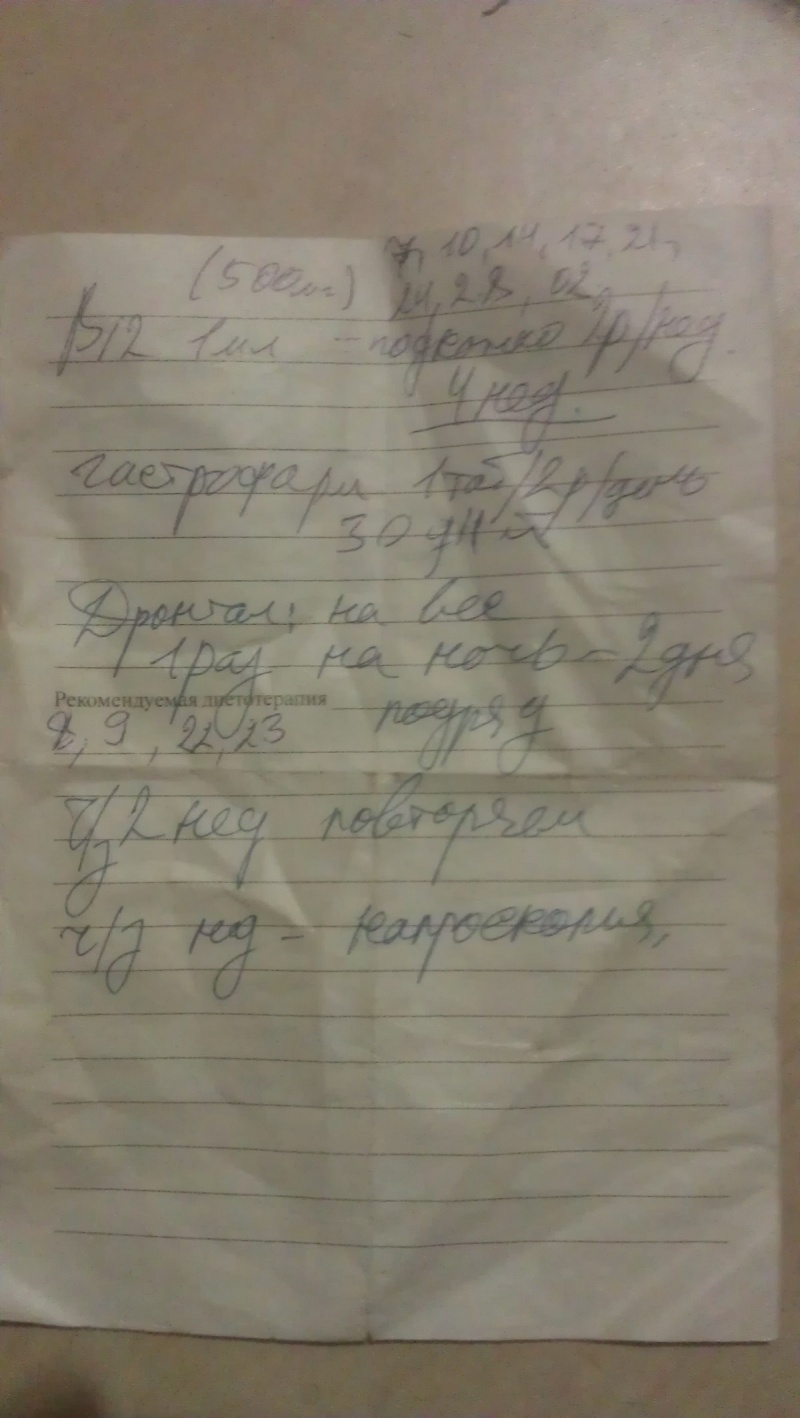 7, 10, 14, 17, 21,
(500мг) 24, 28, 02,
B12 1мл - подкожно 2р/нед.
4 нед.
гастрофарм 1таб/2р/день
30 дней
Дронтал: на вес
1 раз на ночь - 2 дня
Рекомендуемая диетотерапия подряд
8, 9, 22, 23
ч/з 2 нед повторяем
ч/з нд - капроскопия,